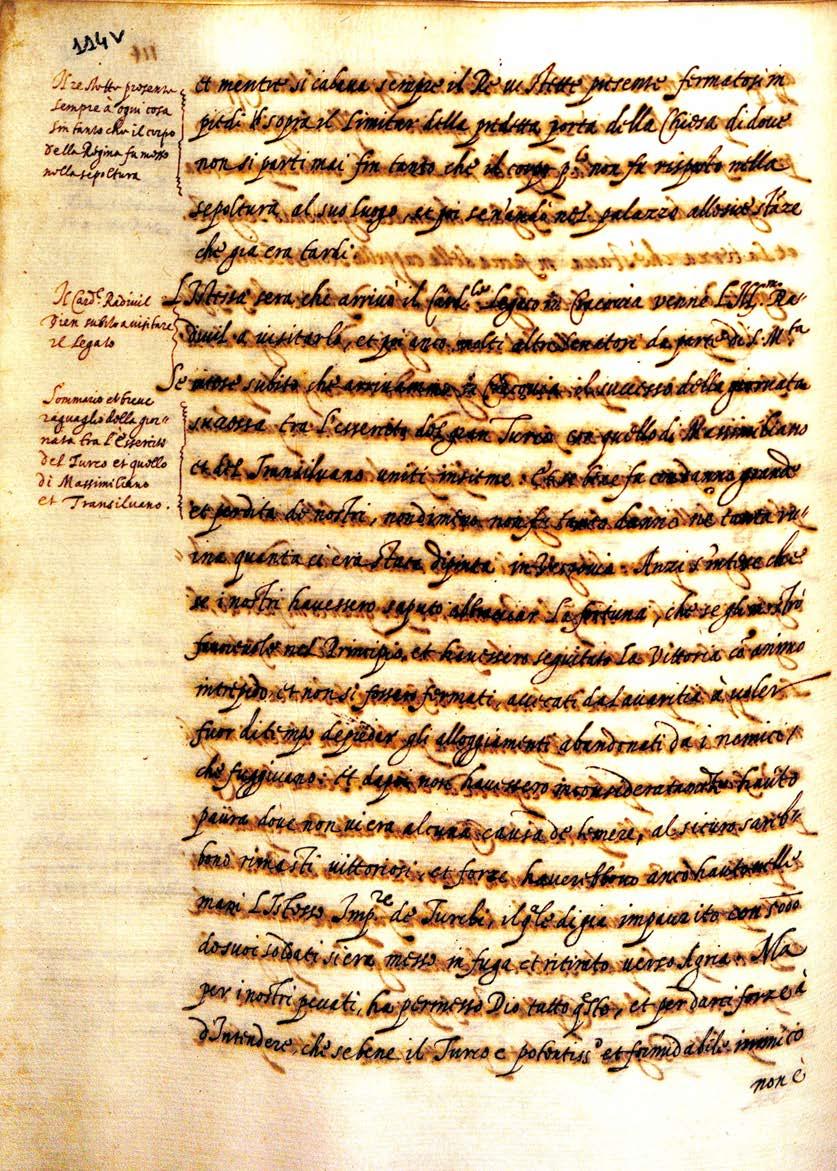 114v
Il re stette presente
sempre à ogni cosa
fin tanto che il corpo
della Regina fu messo
nella sepoltura
et mentre si cabaua sempre il Re ui stette presente fermatosi in
piedi sopra il Limitar della predetta porta della Chiesa di doue
non si parti mai fin tanto che il corpo p.to non fu risposto nella
sepoltura al suo luogo, et poi se n'andò nel palazzo alle sue stãze
che gia era tardi
Il Card.l Radiuil
uien subito a uisitare
il Legato
L'Istessa sera che arriuò il Card.le Legato in Cracouia uenne L'Ill.mo Ra-
diuil a uisitarlo, et poi anco molti altri Senatori da parte di S. M.ta
Sommario et breue
raguaglio della gior-
nata tra l'Essercito
del Turco et quello
di Massimiliano
et Transiluano.
Se intese subito che arriuammo in Cracouia il successo della giornata
successa tra l'essercito del gran Turco con quello di Massimiliano
et del Transiluano uniti insieme. Et se bene fu con danno grande
et perdita de nostri, nondimeno non fu tanto danno ne tanta ru-
ina quanta ci era stata dipinta in Varsouia. Anzi s'intese che
se i nostri hauessero saputo abbracciar La fortuna, che se gli mostrò
fauoreuole nel Principio, et hauessero seguitato La Vittoria cõ animo
intrepido, et non si fossero fermati, accecati da Lauaritia à uoler
fuor di tempo depredar gli alloggiamenti abandonati da i nemici,
che fuggiuano: et dapoi non hauessero inconsideratam.te hauuto
paura doue non ui era alcuna causa de temere, al sicuro sareb-
bono rimasti uittoriosi, et forze hauerebbono anco hauto nelle
mani L'Istesso Imp.re de Turchi, il q.le di gia impaurito con
de suoi soldati si era messo in fuga et ritirato uerso Agria. Ma
per i nostri peccati, ha permesso Dio tutto q.sto, et per darci forze à
d'Intendere, che se bene il Turco e potentiss.o et formidabile inimico
non è